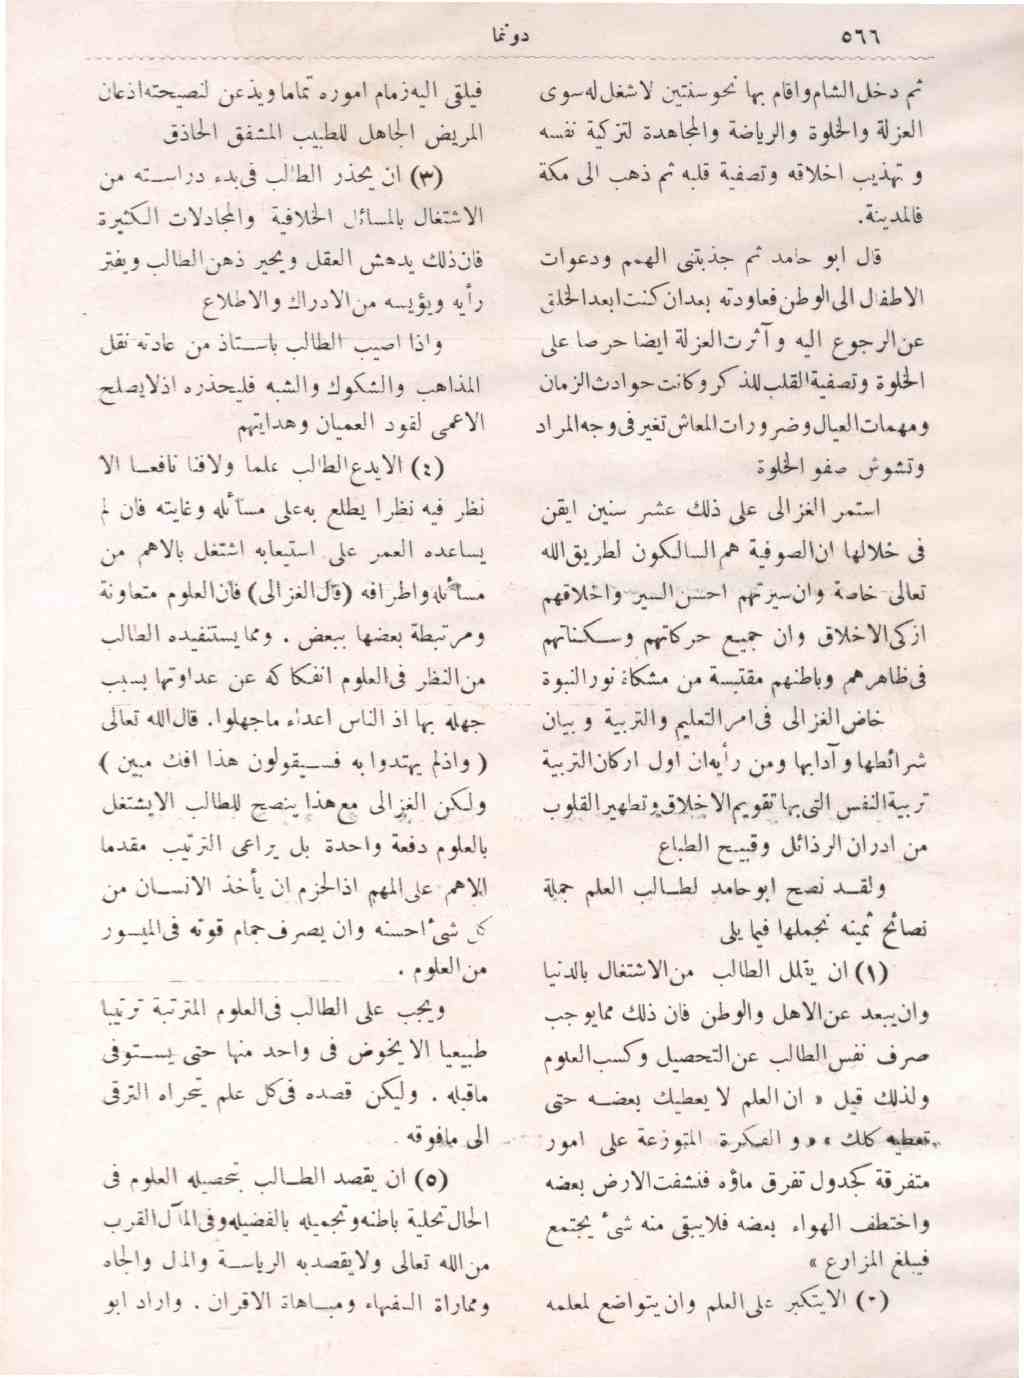 ٥٦٦
دونما
ثم دخل الشام واقام بها نحو سنتين لا شغل له سوى
العزلة والخلوة والرياضة والمجاهدة لتزكية نفسه
و تهذيب اخلاقه وتصفية قلبه ثم ذهب الى مكة
فالمدينة.
قال ابو حامد ثم جذبتنى الهمم ودعوات
الاطفال الى الوطن فعاودته بعدان كنت ابعد الخلق
عن الرجوع اليه وآثرت العزلة ايضا حرصا على
الخلوة وتصفية القلب للذكر وكانت حوادث الزمان
ومهمات العيال وضرورات المعاش تغير فى وجه المراد
وتشوش صفو الخلوة
استمر الغزالى على ذلك عشر سنين ايقن
فى خلالها ان الصوفية هم السالكون لطريق الله
تعالى خاصة وان سيرتهم احسن السير واخلاقهم
ازكى الاخلاق وان جميع حركاتهم وسكناتهم
فى ظاهرهم وباطنهم مقتبسة من مشكاة نور النبوة
خاض الغزالى فى امر التعليم والتربية و بيان
شرائطها و آدابها ومن رأيه ان اول اركان التربية
تربية النفس التى بها تقويم الاخلاق وتطهير القلوب
من ادران الرذائل وقبيح الطباع
ولقد نصح ابو حامد لطالب العلم جملة
نصائح ثمينه نجملها فيما يلى
(١) ان يقلل الطالب من الاشتغال بالدنيا
وان يبعد عن الاهل والوطن فان ذلك مما يوجب
صرف نفس الطالب عن التحصيل وكسب العلوم
ولذلك قيل « ان العلم لا يعطيك بعضه حتى
تعطيه كلك » « و الفكرة المتوزعة على امور
متفرقة كجدول تفرق ماؤه فنشفت الارض بعضه
واختطف الهواء بعضه فلا يبقى منه شئ يجتمع
فيبلغ المزارع »
(٢) الا يتكبر على العلم وان يتواضع لمعلمه
فيلقى اليه زمام اموره تماما ويذعن لنصيحته اذعان
المريض الجاهل للطبيب المشفق الحاذق
(٣) ان يحذر الطالب فى بدء دراسته من
الاشتغال بالمسائل الخلافية والمجادلات الكثيرة
فان ذلك يدهش العقل ويحير ذهن الطالب ويفتر
رأيه ويؤيسه من الادراك والاطلاع
واذا اصيب الطالب باستاذ من عادته نقل
المذاهب والشكوك والشبه فليحذره اذ لا يصلح
الاعمى لقود العميان وهدايتهم
(٤) الا يدع الطالب علما ولا فنا نافعا الا
نظر فيه نظرا يطلع به على مسائله وغايته فان لم
يساعده العمر على استيعابه اشتغل بالاهم من
مسائله واطرافه (قال الغزالى) فان العلوم متعاونة
ومرتبطة بعضها ببعض . ومما يستفيده الطالب
من النظر فى العلوم انفكاكه عن عداوتها بسبب
جهله بها اذ الناس اعداء ما جهلوا. قال الله تعالى
( واذ لم يهتدوا به فسيقولون هذا افك مبين )
ولكن الغزالى مع هذا ينصح للطالب الا يشتغل
بالعلوم دفعة واحدة بل يراعى الترتيب مقدما
الاهم على المهم اذ الحزم ان يأخذ الانسان من
كل شئ احسنه وان يصرف جمام قوته فى الميسور
من العلوم .
ويجب على الطالب فى العلوم المترتبة ترتيبا
طبيعيا الا يخوض فى واحد منها حتى يستوفى
ما قبله . وليكن قصده فى كل علم يتحراه الترقى
الى مافوقه
(٥) ان يقصد الطالب بتحصيله العلوم فى
الحال تحلية باطنه وتجميله بالفضيله وفى المآل القرب
من الله تعالى ولا يقصد به الرياسة والمال والجاه
ومماراة السفهاء ومباهاة الاقران . واراد ابو